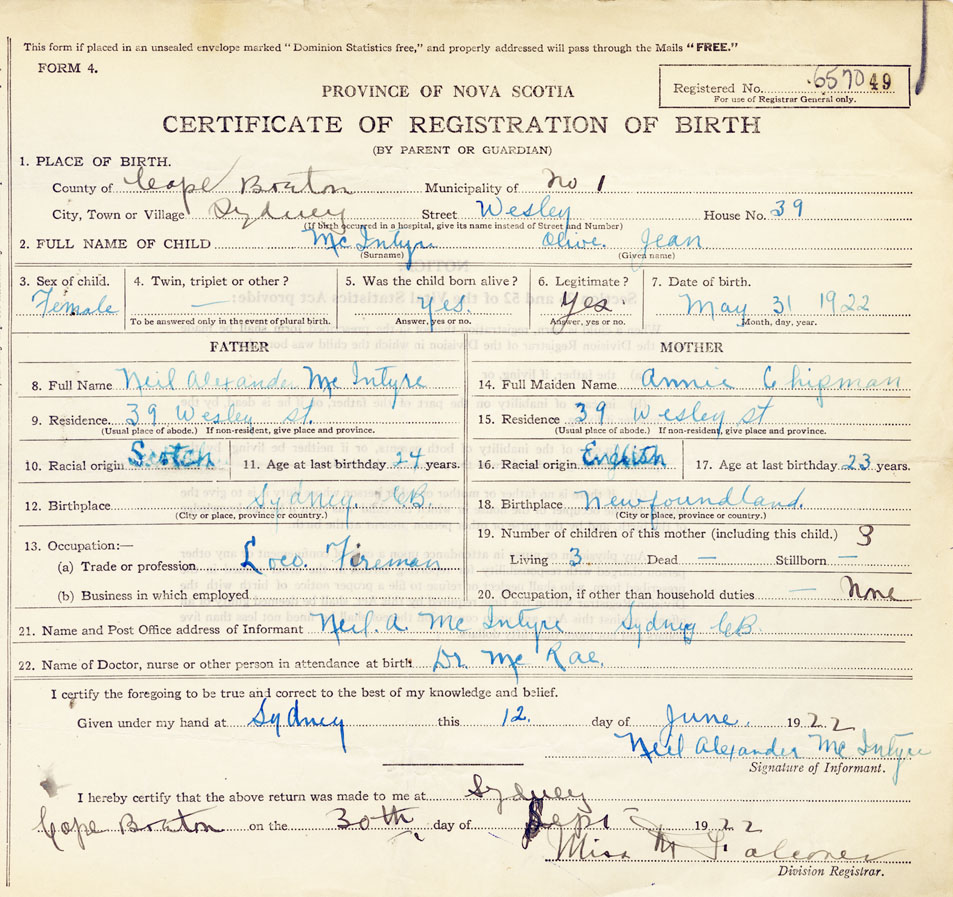 This form if placed in an unsealed envelope marked "Dominion Statistics free," and properly addressed will pass through the Mails "FREE."
FORM 4.
Registered No. 657049
For use of Registrar General only.
PROVINCE OF NOVA SCOTIA
CERTIFICATE OF REGISTRATION OF BIRTH
(BY PARENT OR GUARDIAN)
1. PLACE OF BIRTH.
County of Cape Breton Municipality of No 1
City, Town or Village Sydney Street Wesley House No. 39
(If birth occurred in a hospital, give its name instead of Street and Number)
2. FULL NAME OF CHILD Mc Intyre Olive Jean
(Surname) (Given name)
3. Sex of child. 4. Twin, triplet or other? 5. Was the child born alive? 6. Legitimate? 7. Date of birth.
Female — Yes. Yes. May 31 1922
To be answered only in the event of plural birth. Answer, yes or no. Answer, yes or no. Month, day, year.
FATHER MOTHER
8. Full Name Neil Alexander Mc Intyre 14. Full Maiden Name Annie Chipman
9. Residence. 39 Wesley St. 15. Residence 39 Wesley St
(Usual place of abode.) If non-resident, give place and province. (Usual place of abode.) If non-resident, give place and province.
10. Racial origin Scotch 11. Age at last birthday 24 years. 16. Racial origin English 17. Age at last birthday 23 years.
12. Birthplace Sydney. CB. 18. Birthplace Newfoundland.
(City or place, province or country.) (City or place, province or country.)
13. Occupation:— 19. Number of children of this mother (including this child.) 3
(a) Trade or profession Loco. Fireman Living 3 Dead — Stillborn —
(b) Business in which employed 20. Occupation, if other than household duties — None
21. Name and Post Office address of Informant Neil. A. Mc Intyre Sydney CB.
22. Name of Doctor, nurse or other person in attendance at birth Dr. Mc Rae.
I certify the foregoing to be true and correct to the best of my knowledge and belief.
Given under my hand at Sydney this 12. day of June. 1922
Neil Alexander Mc Intyre
Signature of Informant.
I hereby certify that the above return was made to me at Sydney
Cape Breton on the 30th day of Sept 1922
Miss M Falconer
Division Registrar.